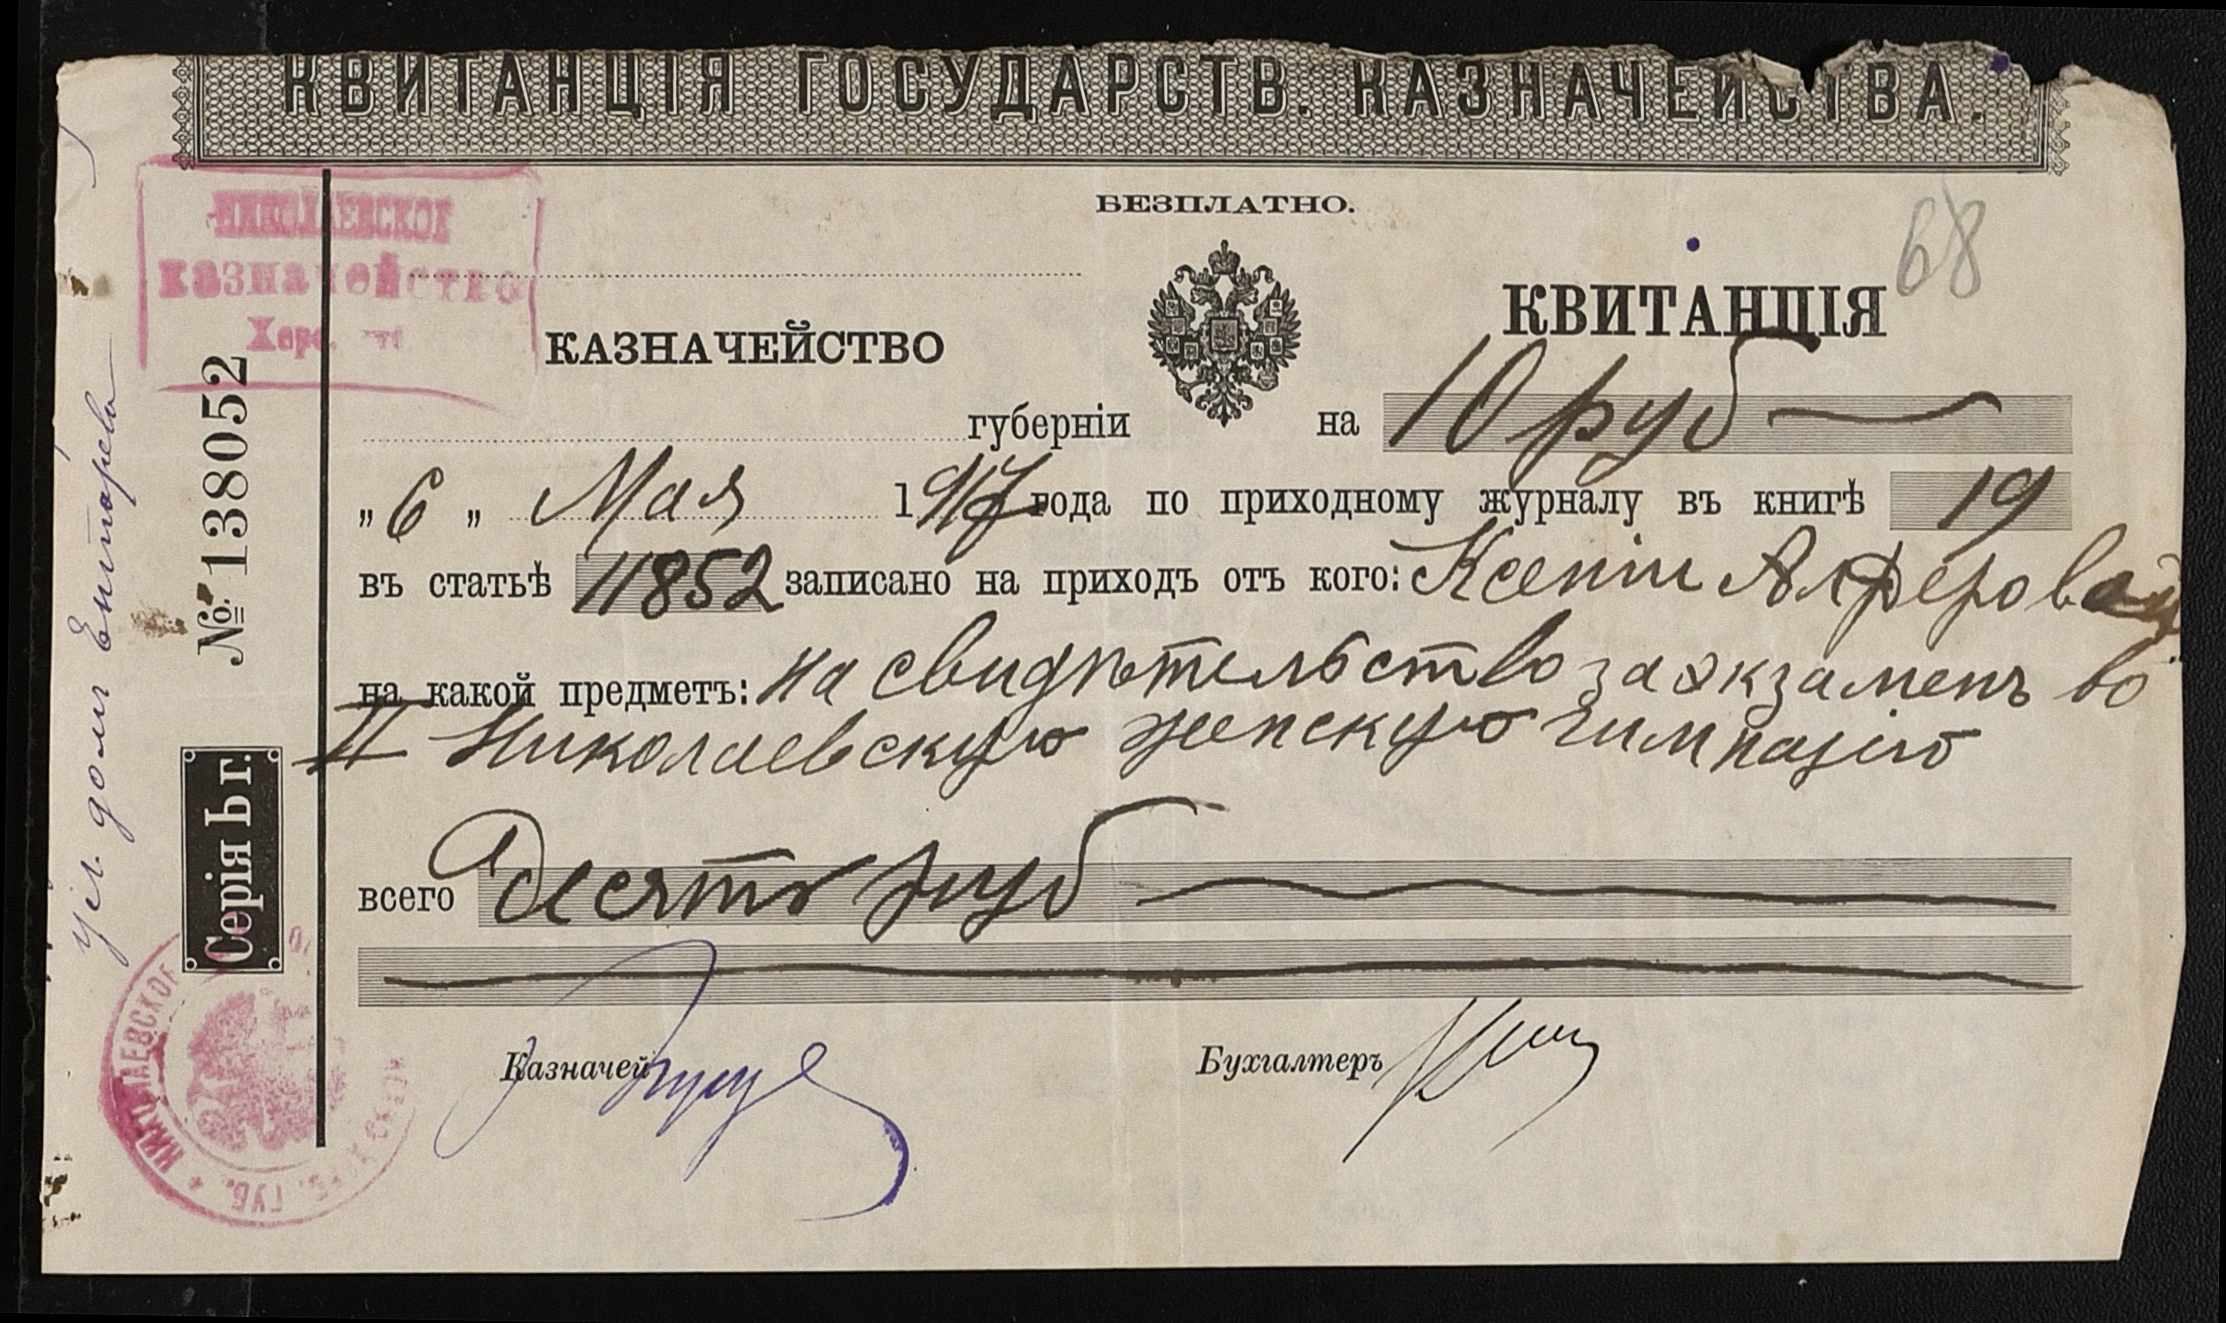 КВИТАНЦІЯ ГОСУДАРСТВ. КАЗНАЧЕЙСТВА.
БЕЗПЛАТНО.
НИКОЛАЕВСКОЕ
казначейство
68
КВИТАНЦІЯ
КАЗНАЧЕЙСТВО
губерніи на 10 руб
„ 6 „ Мая 1917 года по приходному журналу въ книгѣ 19
въ статьѣ 11852 записано на приходъ отъ кого: Ксеніи Алферовой
на какой предметъ: на свидѣтельство за экзаменъ во
II Николаевскую женскую гимназію
всего Десять руб
Казначей
Бухгалтеръ
№ 138052
Серія Ъ г.
НИКОЛАЕВСКОЕ
ГУБ.